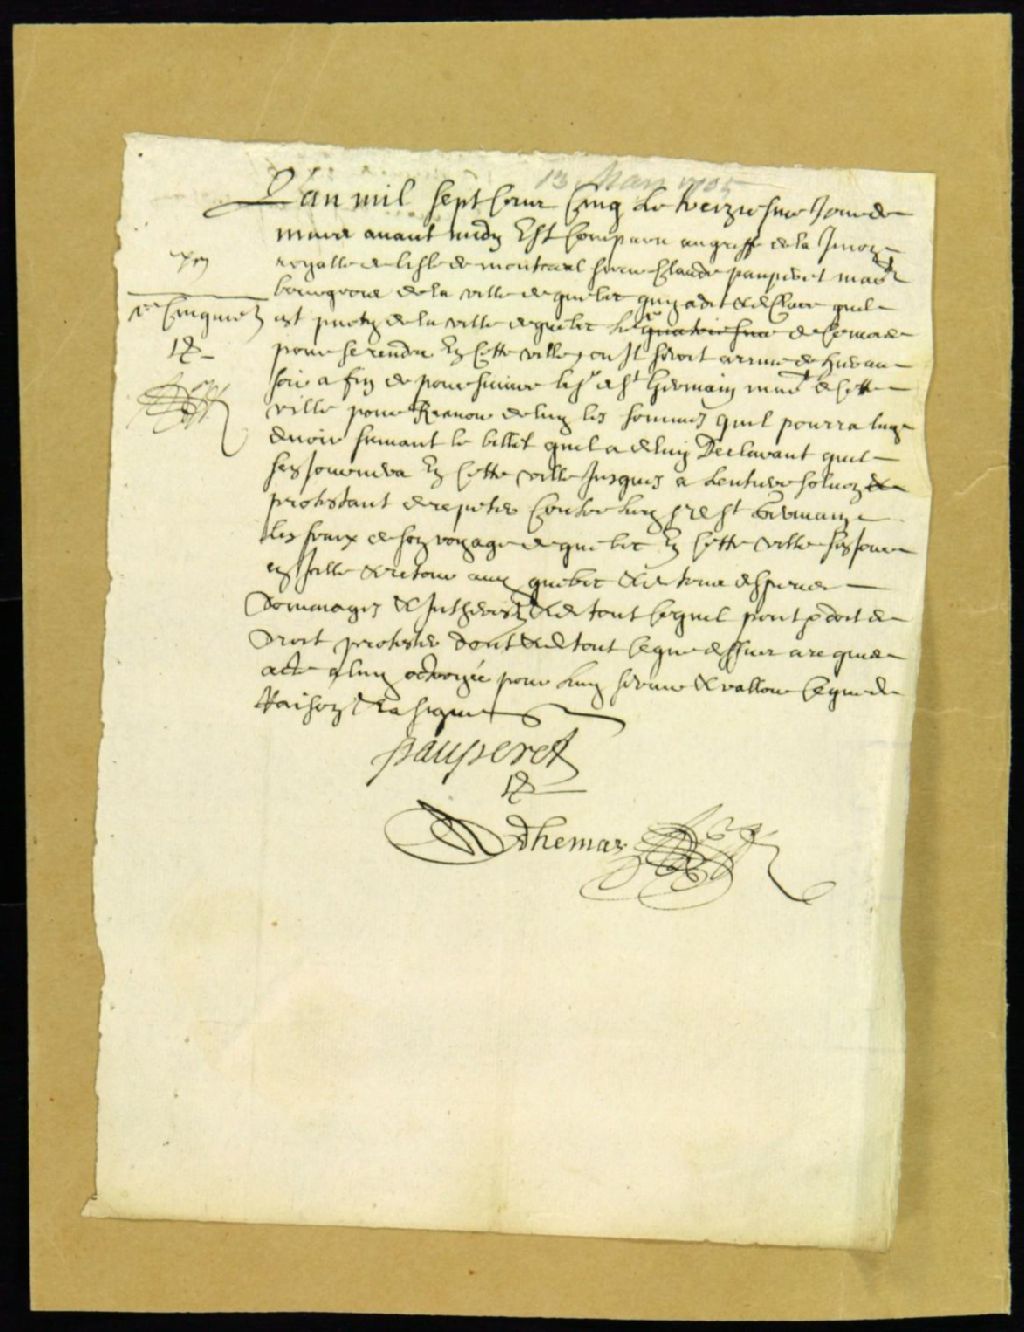 13 Mars 1705
L'an mil sept cent Cinq le treiziesme Jour de
mars avant midy Est Comparu au greffe de la Juron
royalle de lisle de montreal sieur Claude pauperet mard
bourgeois de la ville de quebec quy a dit & declaré quil
est party de la ville de quebec le quatriesme de ce mois
pour se rendre En Cette ville, ou Il seroit arrivé de hier au
soir a fin de poursuivre le sr de st Germain mard de Cette
ville pour avoir de luy les sommes quil pourra luy
devoir suivant le billet quil a de luy Declarant quil
sejournera En Cette ville Jusques a lentiere soluon &
protestant de repeter Contre luy sr de st Germain
les fraix de son voyage de quebec En Cette ville sejour
en Icelle & retour audt quebec & de tous despens
Dommages & Interests & de tout ce quil peut & doit de
Droit protester dont & de tout ce que dessus a requis
acte a luy octroyé pour luy servir & valloir ce que de
Raison & a signé
le Cinquie
pauperet
Adhemar